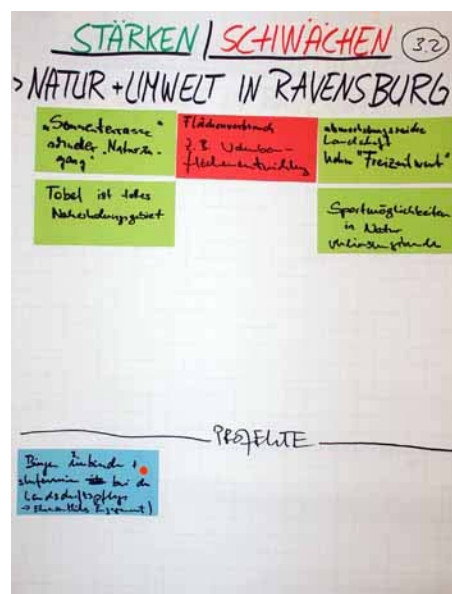 STÄRKEN | SCHWÄCHEN 3.2
> NATUR + UMWELT IN RAVENSBURG
"Sonnenterrasse"
gang"
Tobel ist tolles
Naherholungsgebiet
Flächenverbrauch
z.B. 
flächenentwicklung
abwechslungsreiche
Landschaft
hoher "Freizeitwert"
Sportmöglichkeiten
in Natur
PROJEKTE
Bürger einbinden +
bei der
Landschaftspflege
→ Ehrenamtliches Engagement)